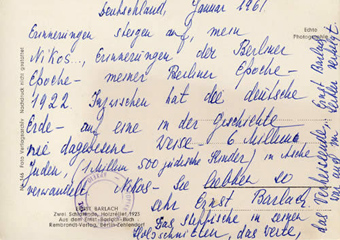 Deutschland, Januar 1961
Erinnerungen steigen auf, mein
Nikos, Erinnerungen der Berliner
Epoche – meiner Berliner Epoche –
1922 Inzwischen hat die deutsche
Erde – auf eine in der Geschichte
nie dagewesene Weise – 6 Millionen
Juden, 1 Million 500 jüdische Kinder) in Asche
verwandelt Nikos – Sie liebten so
sehr Ernst Barlach
Das skeptische in seinen
Holzschnitten, das verte,
das Verheissende, Ernst Barlach
war auch im
Echte
Photographie
Nr. 146 Foto Verlagsarchiv Nachdruck nicht gestattet
ERNST BARLACH
Zwei Schlafende, Holzrelief 1931
Aus dem Ernst-Barlach-Buch
Rembrandt-Verlag, Berlin-Zehlendorf